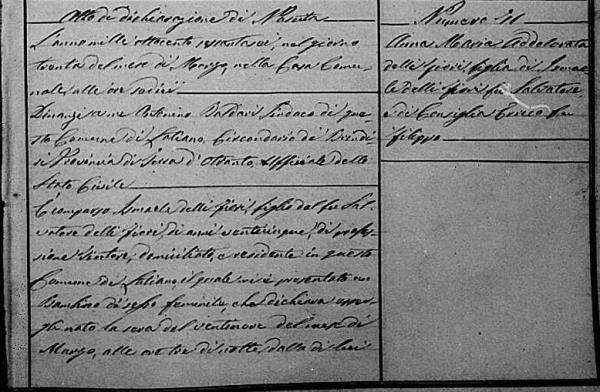 Atto di dichiarazione di Nascita
L'anno mille ottocento sessanta sei, nel giorno
trenta del mese di Marzo, nella Casa Comu-
nale, alle ore sedici
Dinanzi a me Baldari Sindaco di que-
sto Comune di Latiano, Circondario di Brindi-
si Provincia di Terra d'Otranto, Uffiziale dello
Stato Civile
È comparso Ismaele delli fiori, figlio del fu Sal-
vatore delli fiori, di anni venticinque, di profes-
sione Tintore, domiciliato, e residente in questo
Comune di Latiano, il quale mi à presentato un
Bambino di sesso feminile, che dichiara esser-
gli nato la sera del ventinove del mese di
Marzo, alle ore tre di notte, dalla di lui
Numero 71
Anna Maria Addolorata
delli fiori, figlia di Isma-
ele delli fiori fu Salvatore,
e di Consiglia Errico fu
filippo